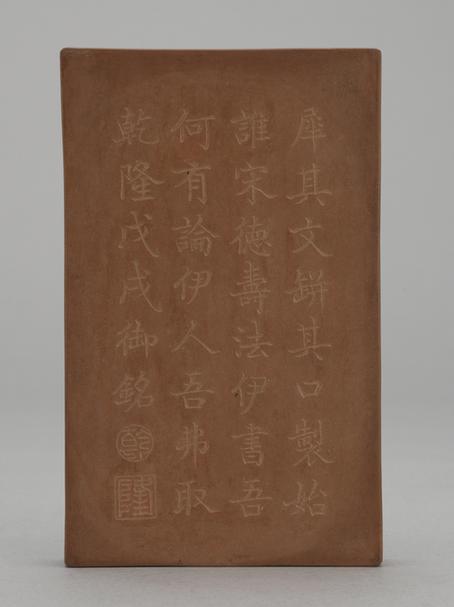 犀其文缾其口製始
誰宋德壽法伊書吾
何有論伊人吾弗取
乾隆戊戌御銘
乾
隆